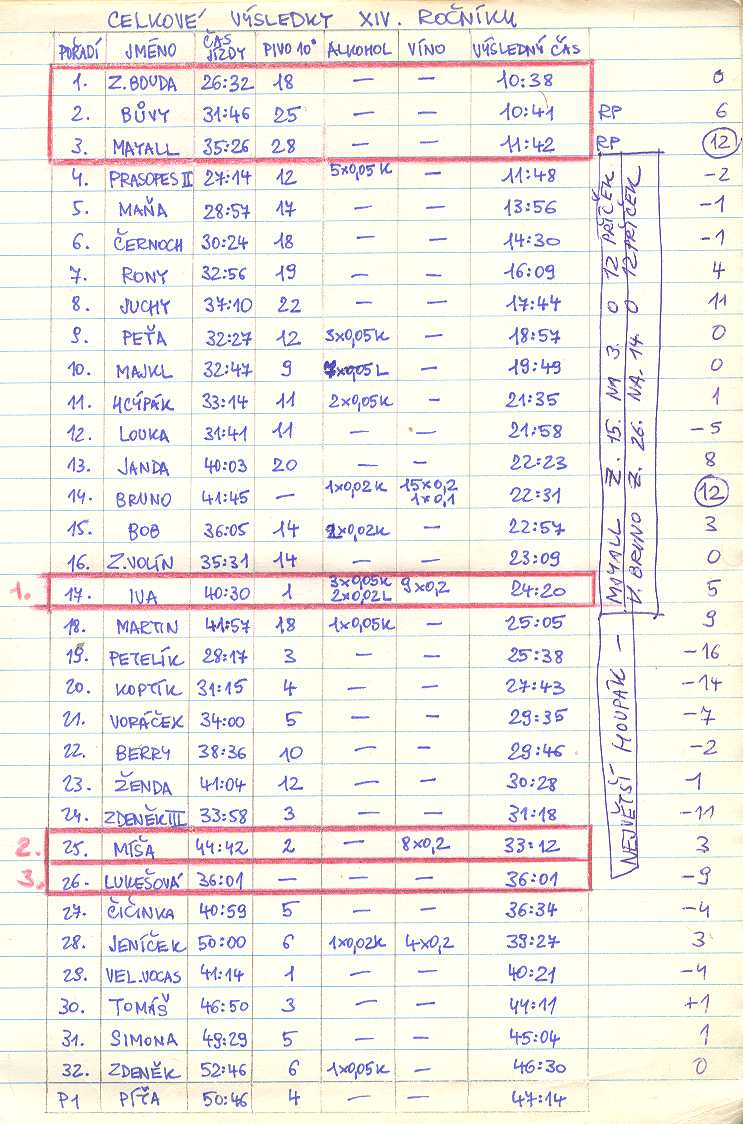 CELKOVÉ VÝSLEDKY XIV. ROČNÍKU
POŘADÍ JMÉNO ČAS JÍZDY PIVO 10° ALKOHOL VÍNO VÝSLEDNÝ ČAS
1. Z.BOUDA 26:32 18 — — 10:38 0
2. BŮVY 31:46 25 — — 10:41 RP 6
3. MAYALL 35:26 28 — — 11:42 RP 12
4. PRASOPES II 27:14 12 5x0,05K — 11:48 -2
5. MAŇA 28:57 17 — — 13:56 -1
6. ČERNOCH 30:24 18 — — 14:30 -1
7. RONY 32:56 19 — — 16:09 4
8. JUCHY 37:10 22 — — 17:44 11
9. PEŤA 32:27 12 3x0,05K — 18:57 0
10. MAJKL 32:47 9 7x0,05L — 19:49 0
11. HCÝPÁK 33:14 11 2x0,05K — 21:35 1
12. LOUKA 31:41 11 — — 21:58 -5
13. JANDA 40:03 20 — — 22:23 8
14. BRUNO 41:45 — 1x0,02K 15x0,2 1x0,1 22:31 12
15. BOB 36:05 14 x0,02K — 22:57 3
16. Z.VOLÍN 35:31 14 — — 23:09 0
1. 17. IVA 40:30 1 3x0,05K 2x0,02L 9x0,2 24:20 5
18. MARTIN 41:57 18 1x0,05K — 25:05 9
19. PETELÍK 28:17 3 — — 25:38 -16
20. KOPTÍK 31:15 4 — — 27:43 -14
21. VORÁČEK 34:00 5 — — 29:35 -7
22. BERRY 38:36 10 — — 29:46 -2
23. ŽENDA 41:04 12 — — 30:28 1
24. ZDENĚK III 33:58 3 — — 31:18 -11
2. 25. MÍŠA 44:42 2 — 8x0,2 33:12 3
3. 26. LUKEŠOVÁ 36:01 — — — 36:01 -9
27. ČIČINKA 40:59 5 — — 36:34 -4
28. JENÍČEK 50:00 6 1x0,02K 4x0,2 39:27 3
29. VEL.VOCAS 41:14 1 — — 40:21 -4
30. TOMÁŠ 46:50 3 — — 44:11 +1
31. SIMONA 49:29 5 — — 45:04 1
32. ZDENĚK 52:46 6 1x0,05K — 46:30 0
P1 PÍŤA 50:46 4 — — 47:14
NEJVĚTŠÍ HOUPÁK —
MAYALL Z. 15. NA 3. O 12 PŘÍČEK
V. BRUNO Z. 26. NA. 14. O 12 PŘÍČEK